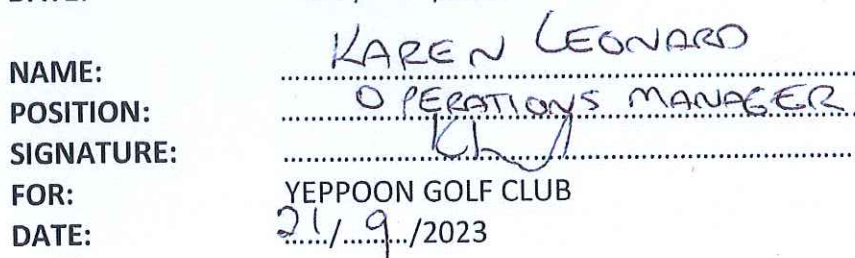 NAME: KAREN LEONARD
POSITION: OPERATIONS MANAGER
SIGNATURE:
FOR: YEPPOON GOLF CLUB
DATE: 21/9/2023